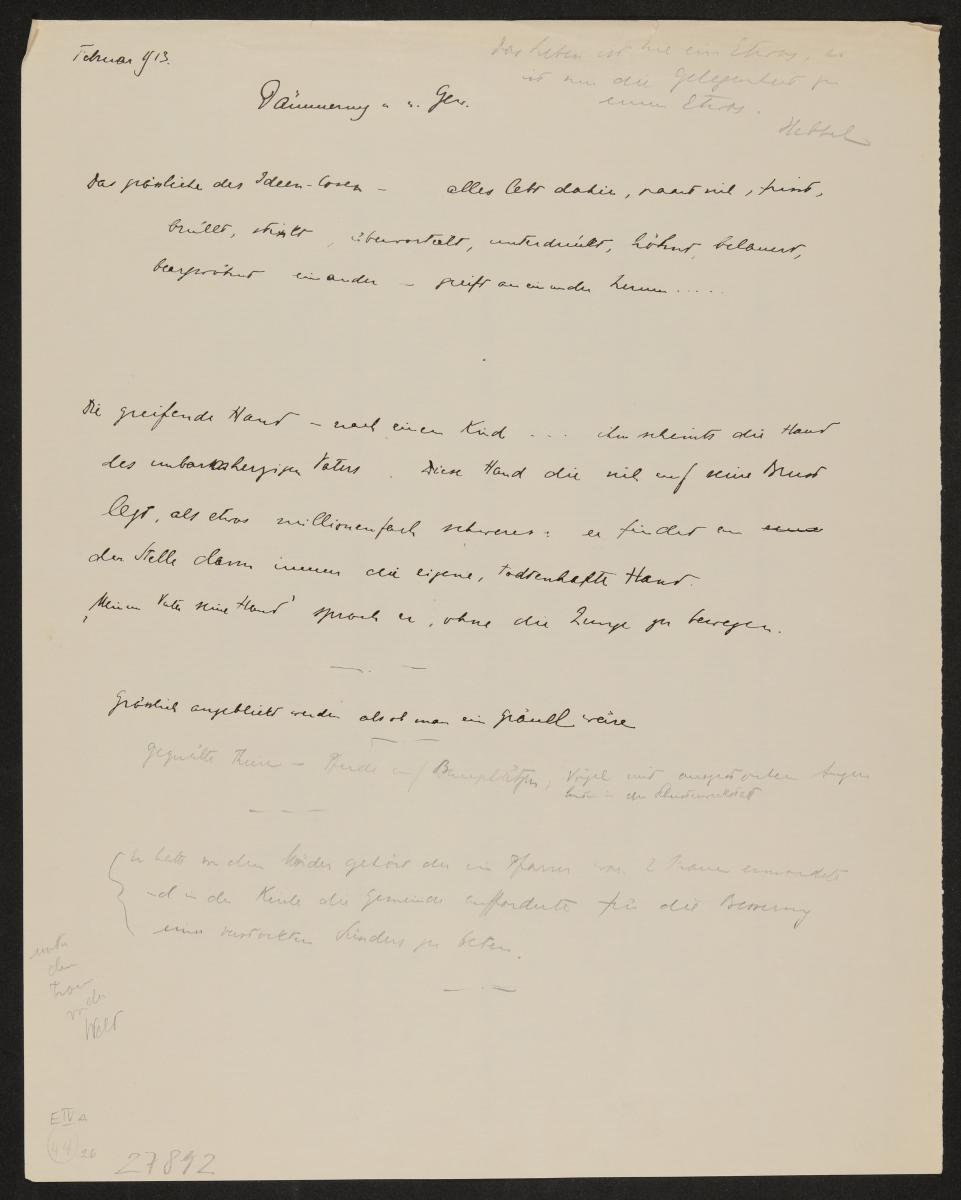 Februar 1913.
Das Leben ist nie ein Etwas, es
ist nur die Gelegenheit zu
einem Etwas.
Hebbel
Dämmerung u. u. Gew.
Das grässliche des Ideen-losen – alles lebt dahin, rauft sich, frisst,
brüllt, stinkt, übervorteilt, unterdrückt, höhnt, belauert,
beargwöhnt einander – greift aneinander herum .....
Die greifende Hand – nach einem Kind ... ihm scheints die Hand
des unbarmherzigen Vaters. Diese Hand die sich auf seine Brust
legt, als etwas millionenfach schweres: er findet an
der Stelle dann immer die eigene, todtenhafte Hand.
„Meinem Vater seine Hand" sprach er, ohne die Zunge zu bewegen.
Grässlich angeblickt werden als ob man ein Gräuel wäre
gequälte Tiere – Pferde auf Bauplätzen, Vögel mit ausgestochenen Augen
in der
Er hatte von dem Mörder gehört der ein Pfarrer war. 2 Frauen ermordete
und in der Kirche die Gemeinde aufforderte für die Besserung
eines verstockten Sünders zu beten.
unter
dem
der
Welt
E IV A
44 26
27892